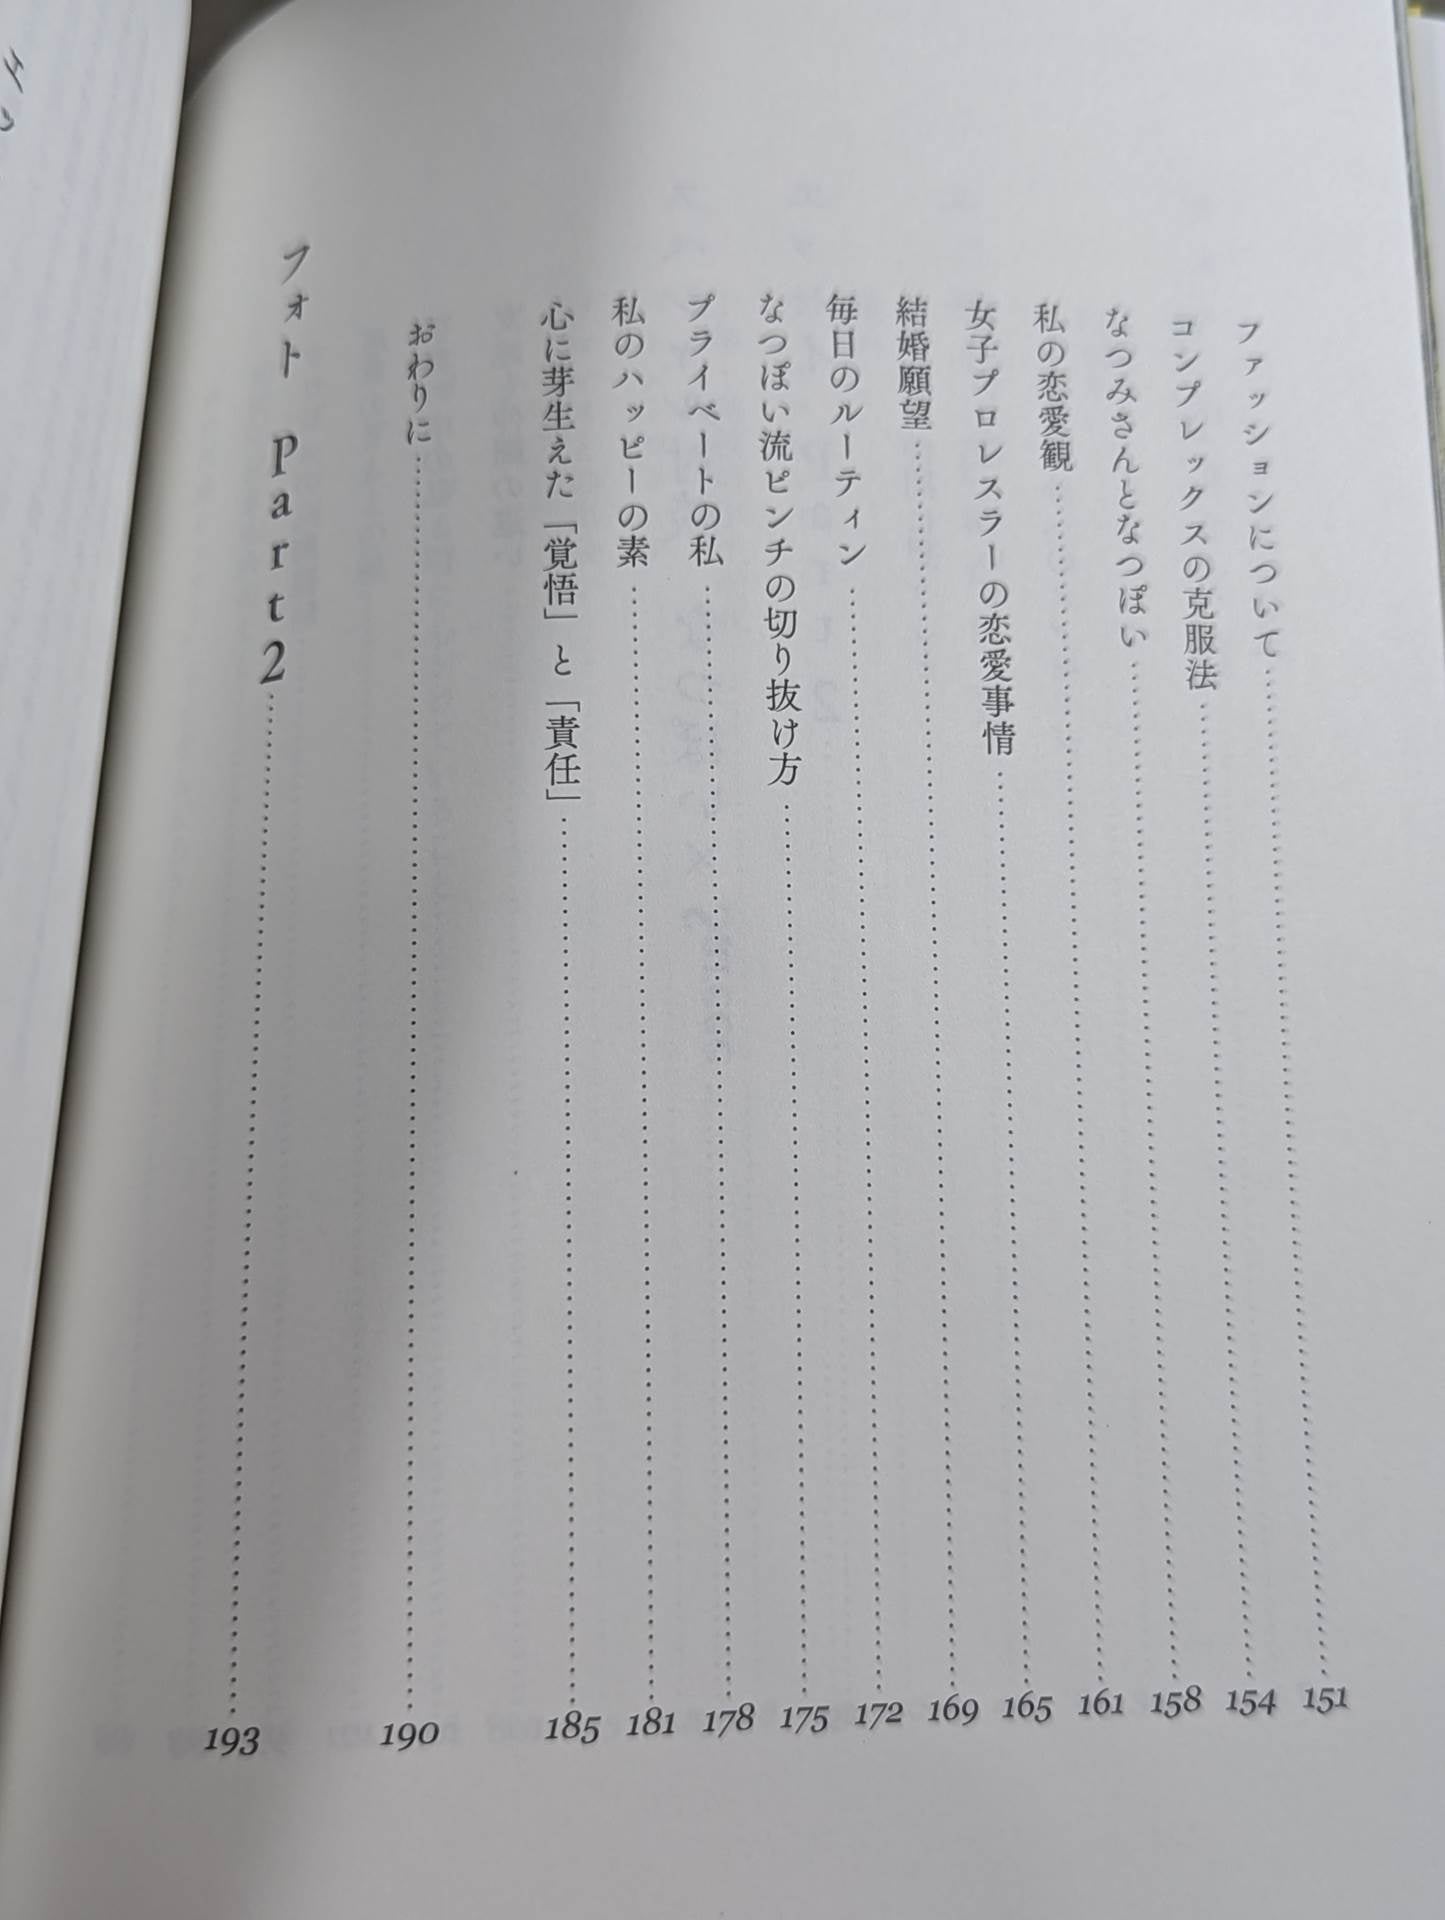 ファッションについて……151
コンプレックスの克服法……154
なつみさんとなつぽい……158
私の恋愛観……161
女子プロレスラーの恋愛事情……165
結婚願望……169
毎日のルーティン……172
なつぽい流ピンチの切り抜け方……175
プライベートの私……178
私のハッピーの素……181
心に芽生えた「覚悟」と「責任」……185
おわりに……190
フォト part2……193